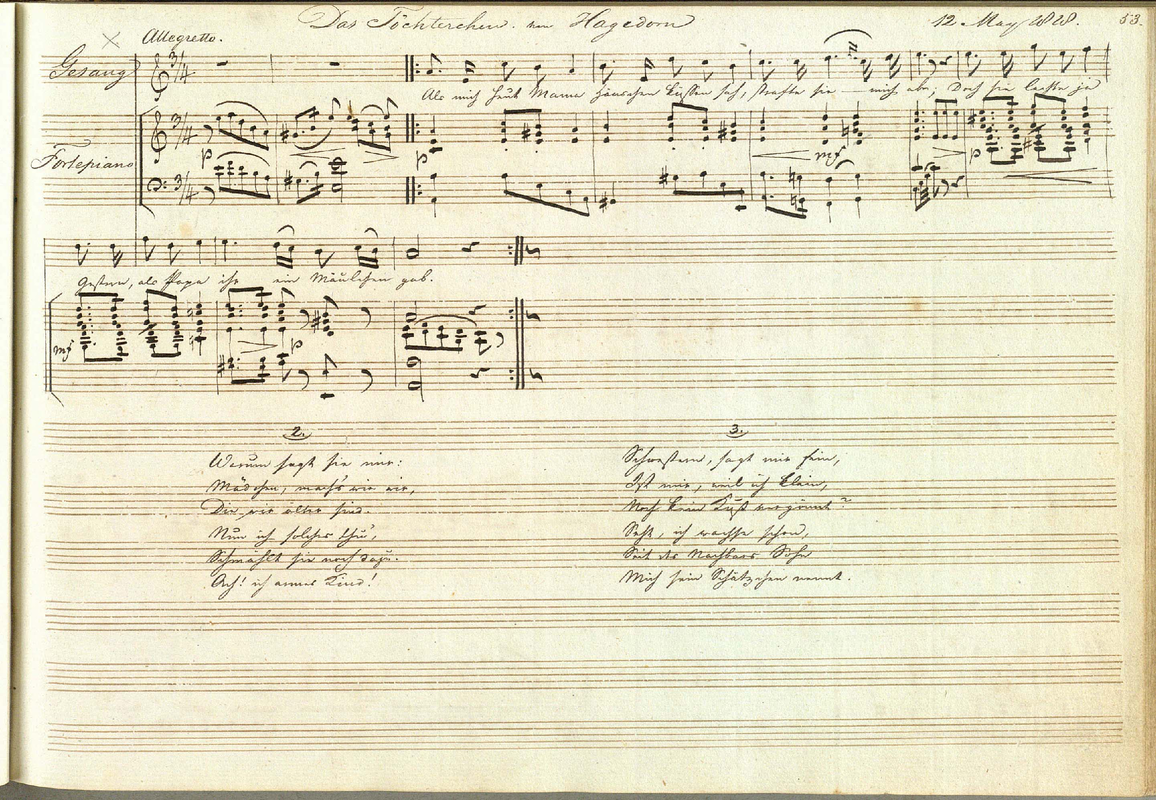 Das Töchterchen. von Hagedorn 12 May 1828. 53.
Allegretto.
Gesang 3/4
Als mich heut Mama Hänschen küssen sah, strafte sie — mich ab; Doch sie lachte ja
Fortepiano 3/4 3/4
p p mf p
gestern, als Papa ihr ein Mäulchen gab.
mf p
2.
Warum sagt sie mir:
Mädchen, mach's wie wir,
Die wir älter sind.
Nun ich solches thu',
Schmählt sie noch dazu.
Ach! ich armes Kind!
3.
Schwestern, sagt mir fein,
Ist mir, weil ich klein,
Noch kein Kuß vergönnt?
Seht, ich wachse schon,
Seit des Nachbars Sohn
Mich sein Schätzchen nennt.